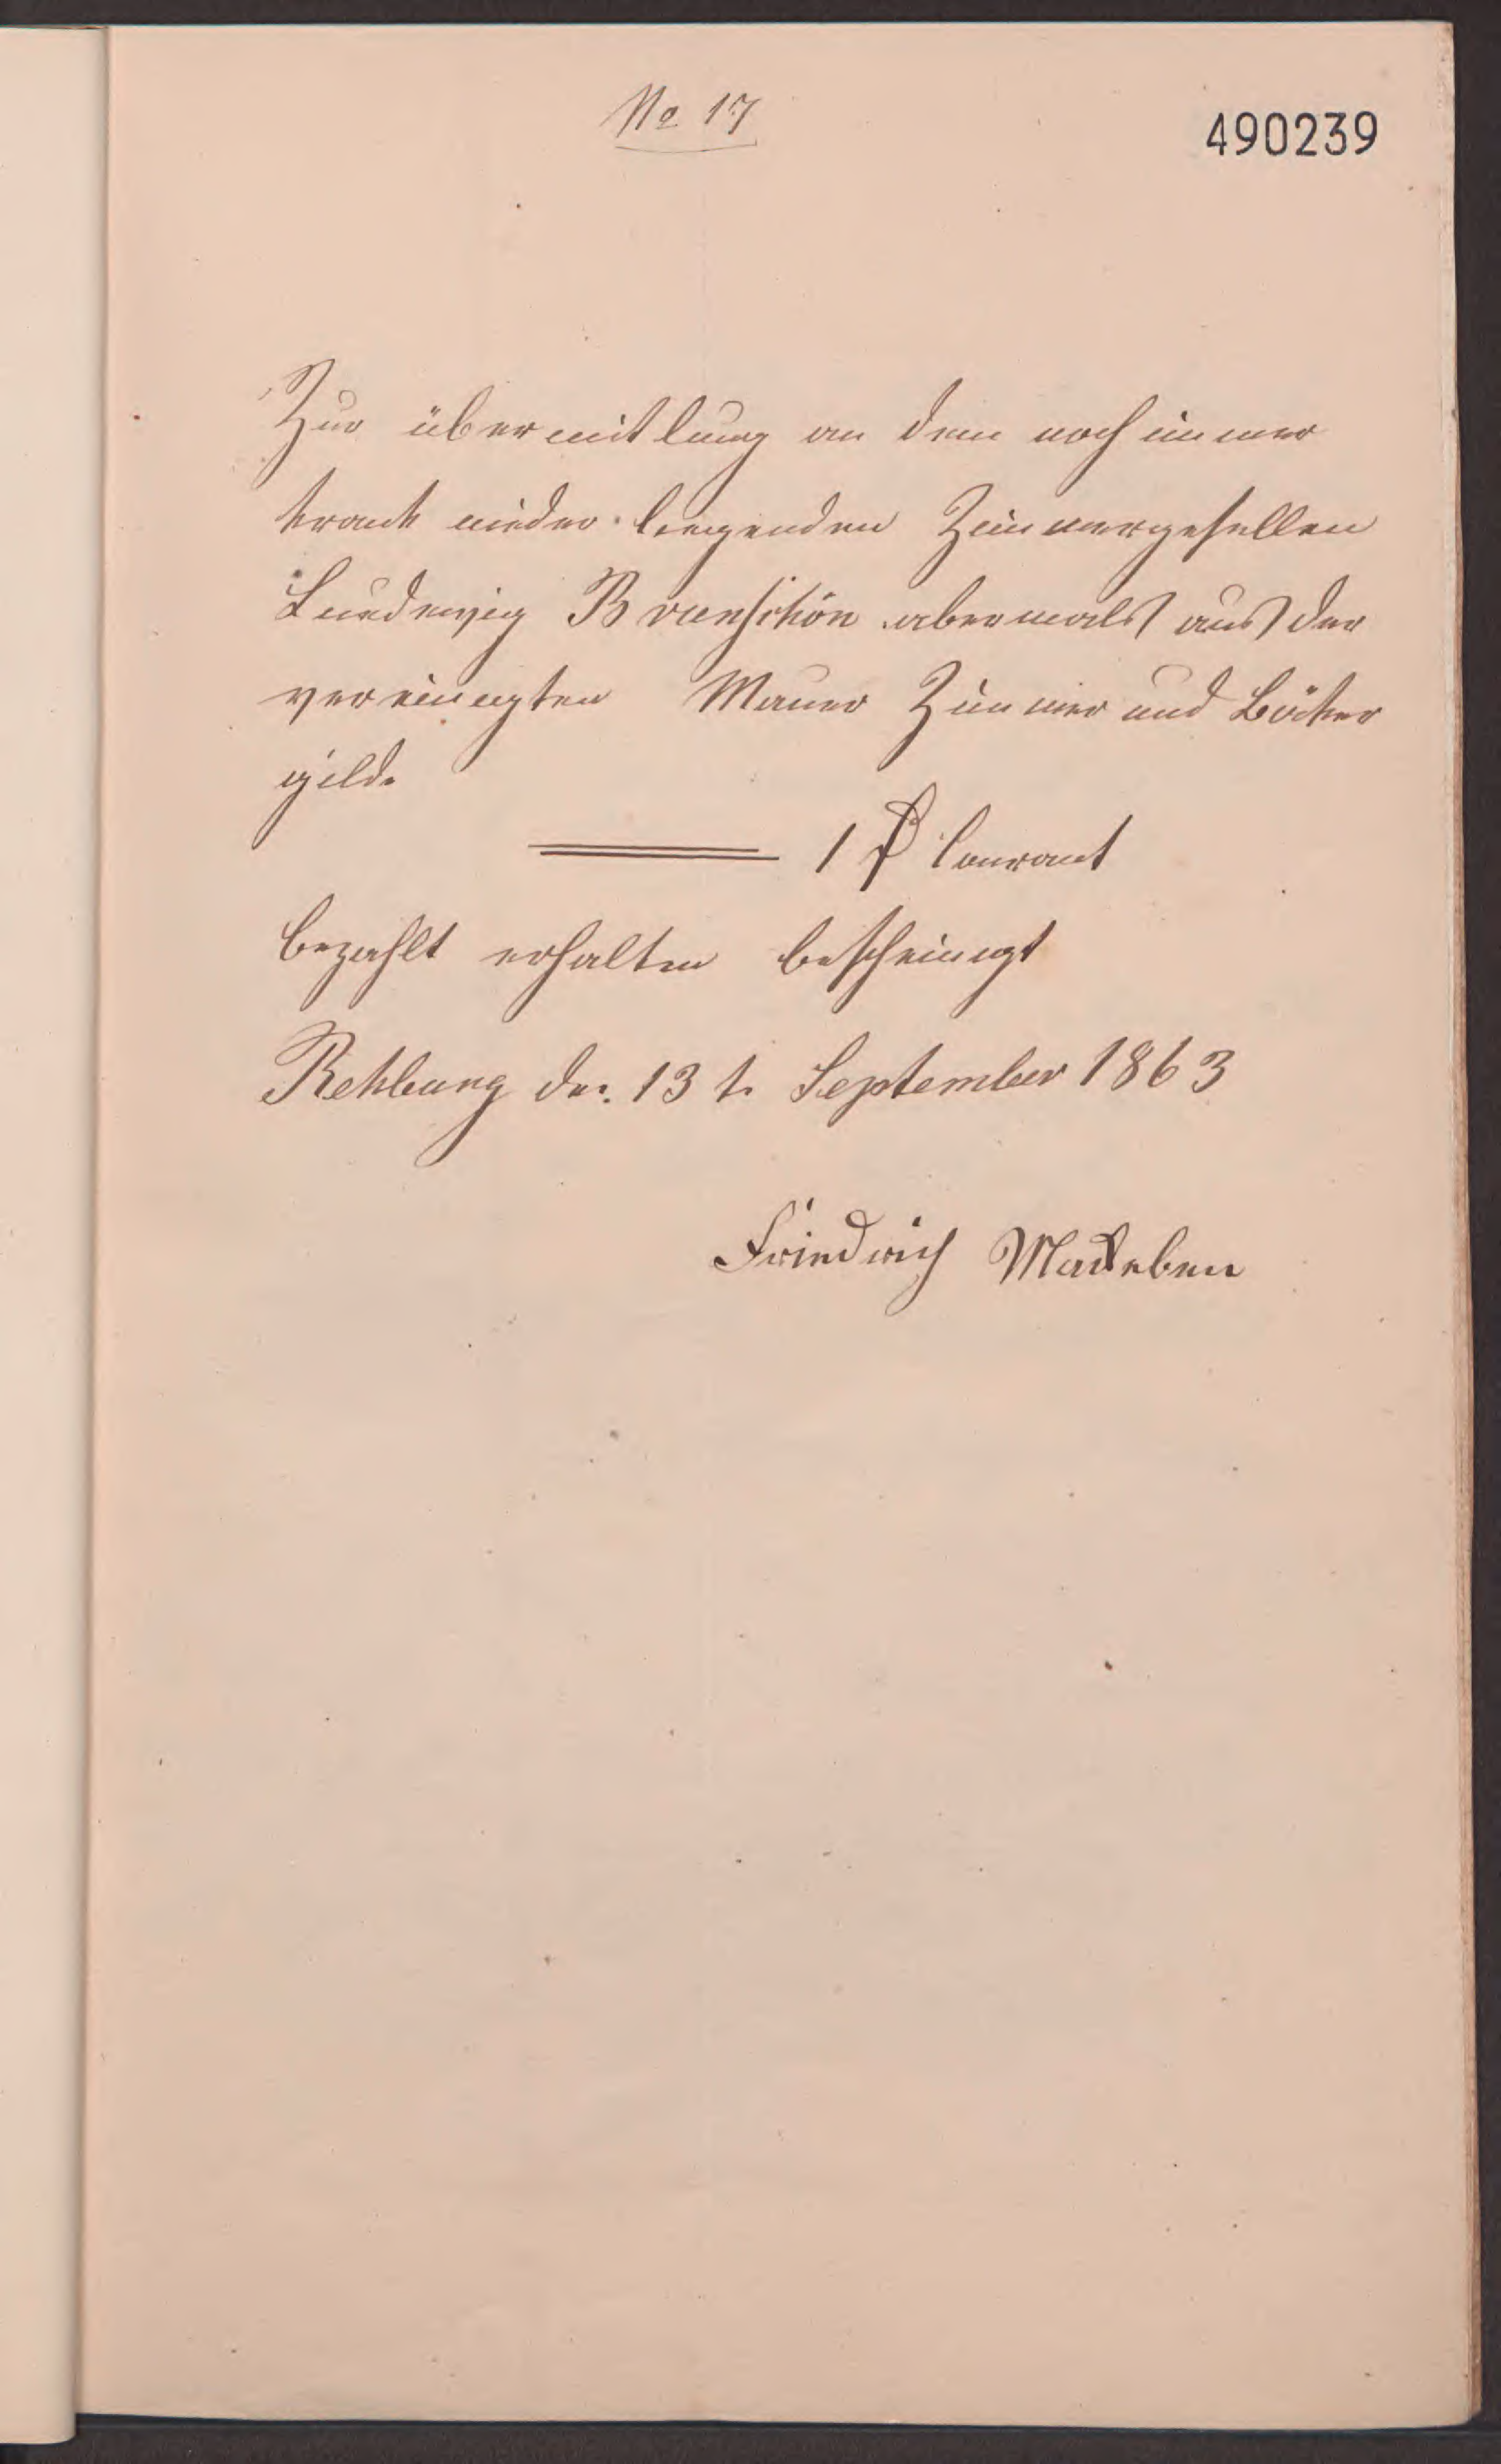 No 17
490239
Zur übermitlung an dem noch immer
krank nieder liegenden Zimmergesellen
Luedewig Brunschön abermals aus der
vereinigten Mauer Zimmer und Böker
gilde
1 ₰ Courant
bezahlt erhalten bescheinigt
Rehburg den 13 t. September 1863
Friedrich Madeben